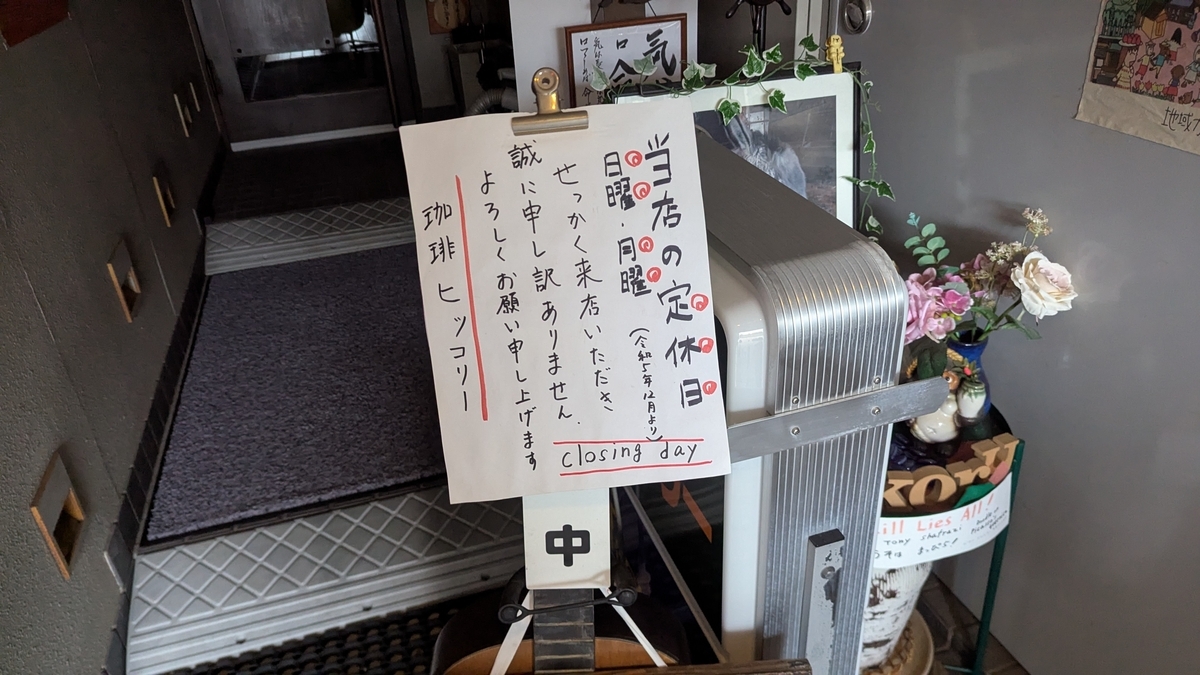 当店の定休日
日曜・月曜
(令和5年12月より)
closing day
せっかく来店いただき
誠に申し訳ありません.
よろしくお願い申し上げます
珈琲 ヒッコリー
中
気
口
命
kory
ill Lies All!
Tony shafrazi
地域